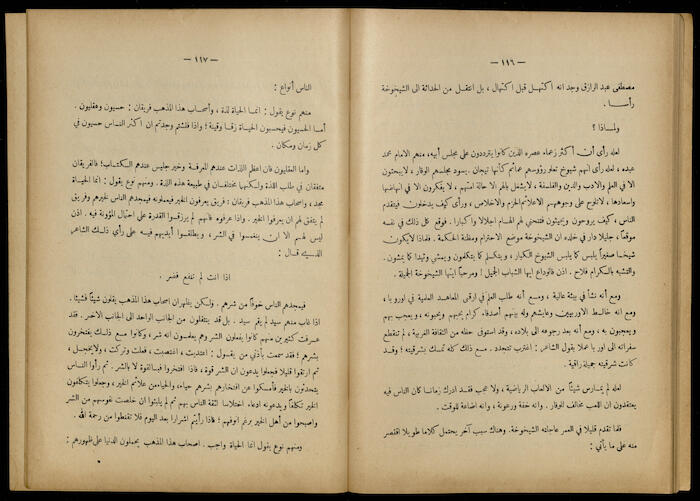 — ١١٦ —
مصطفى عبد الرازق وجد انه اكتهل قبل اكتهال ، بل انتقل من الحداثة الى الشيخوخة
رأساً .
ولماذا ؟
لعله رأى أن أكثر زعماء عصره الذين كانوا يترددون على مجلس أبيه، منهم الامام محمد
عبده ، لعله رأى أنهم شيوخ تعلو رؤوسهم عمائم كأنها تيجان . يسود مجلسهم الوقار، لا يبحثون
الا في العلم والادب والدين والفلسفة ، لا يشغل بالهم الا حالة امتهم ، لا يفكرون الا في انهاضها
واسعادها ، لا تلوح على وجوههم الا علائم الحزم والاخلاص ، ورأى كيف يدخلون فيتقدم
الناس ، كيف يروحون ويجيئون فتنحني لهم الهام اجلالا واكبارا . فوقع كل ذلك في نفسه
موقعاً ، جليلا دار في خلده ان الشيخوخة موضع الاحترام ومظنة الحكمة . فلماذا لا يكون
شيخاً صغيراً يلبس كما يلبس الشيوخ الكبار ، ويتكلم كما يتكلمون ويمشي وئيدا كما يمشون .
والتشبه بالكرام فلاح . اذن فالوداع ايها الشباب الجميل ! ومرحبا ايتها الشيخوخة الجميلة .
ومع أنه نشأ في بيئة عالية ، ومع أنه طلب العلم في ارقى المعاهد العلمية في اوربا ،
ومع انه خالط الاوربيين وعايشهم وله بينهم أصدقاء كرام يحبهم ويحبونه ، ويعجب بهم
ويعجبون به ، ومع أنه بعد رجوعه الى بلاده ، وقد استوفى حظه من الثقافة الغربية ، لم تنقطع
سفراته الى اوربا عملا بقول الشاعر : اغترب تتجدد . مع ذلك كله تمسك بشرقيته ؛ وقد
كانت شرقيته جميلة راقية .
لعله لم يمارس شيئاً من الالعاب الرياضية ، ولا عجب فقد ادرك زمانا كان الناس فيه
يعتقدون ان اللعب مخالف للوقار . وانه خفة ورعونة ، وانه اضاعة للوقت .
فلما تقدم قليلا في العمر عاجلته الشيخوخة. وهناك سبب آخر يحتمل كلاما طويلا اقتصر
منه على ما يأتي :
— ١١٧ —
الناس أنواع :
منهم نوع يقول : انما الحياة لذة ، وأصحاب هذا المذهب فريقان : حسيون وعقليون .
أما الحسيون فيحسبون الحياة زقا وقينة ؛ واذا فتشتم وجدتم ان اكثر الناس حسيون في
كل زمان ومكان .
واما العقليون فان اعظم اللذات عندهم المعرفة وخير جليس عندهم الكتاب؛ فالفريقان
متفقان في طلب اللذة ولكنهما مختلفان في طبيعة هذه اللذة . ومنهم نوع يقول : انما الحياة
مجد، واصحاب هذا المذهب : فريق يعرفون الخير فيعملونه فيمجدهم الناس لخيرهم وفريق
لم يتفق لهم ان يعرفوا الخير . واذا عرفوه فانهم لم يرزقوا القدرة على احتمال المؤونة فيه . اذن
ليس لهم الا ان ينغمسوا في الشر ، ويطلقوا أيديهم فيه على رأي ذلك الشاعر
الذي قال :
اذا انت لم تنفع فضر .
فيمجدهم الناس خوفاً من شرهم . ولكن يظهر ان اصحاب هذا المذهب يقلون شيئاً فشيئا .
اذا غاب منهم سيد لم يقم سيد . بل قد ينتقلون من الجانب الواحد الى الجانب الاخر . فقد
عرفت كثيرين منهم كانوا يفعلون الشر وهم يعلمون انه شر ، وكانوا مع ذلك يفتخرون
بشرهم ؛ فقد سمعت بأذني من يقول : اعتديت ، اغتصبت ، فعلت وتركت ، ولا يخجل ،
ثم ارتقوا قليلا فجعلوا يدعون ان الشر قوة ، فاذا افتخروا فبالقوة لا بالشر . ثم رأوا الناس
يتحدثون بالخير فأمسكوا عن افتخارهم بشرهم حياء، والحياء من علائم الخير، وجعلوا يتكلفون
الخير تكلفاً ويدعونه ادعاء اختلاسا لثقة الناس بهم ثم لم يلبثوا ان خلصت نفوسهم من الشر
واصبحوا من أهل الخير برغم انوفهم ؛ فاذا رأيتم اشرارا بعد اليوم فلا تقنطوا من رحمة الله .
ومنهم نوع يقول انما الحياة واجب . اصحاب هذا المذهب يحملون الدنيا على ظهورهم :